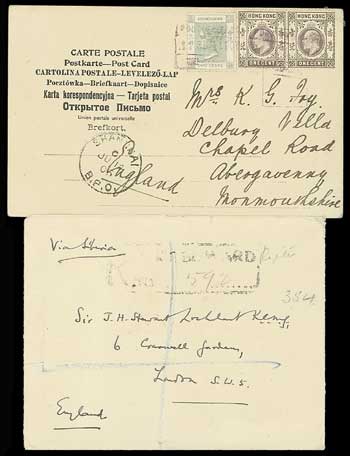 CARTE POSTALE
Postkarte — Post Card
CARTOLINA POSTALE - LEVELEZŐ-LAP
Pocztówka - Briefkaart - Dopisnice
Karta korespondencyjna — Tarjeta postal
Открытое Письмо
Union postale universelle
Brefkort.
HONG KONG
HONG KONG
ONE CENT
ONE CENT
Mrs K. G. Joy
Delbury Villa
Chapel Road
Abergavenny
Monmouthshire
England
SHANGHAI
B.P.O.
Via Siberia
592
384
Sir J. H. Stewart Lockhart
6 Cromwell Gardens,
London S.W.5.
England